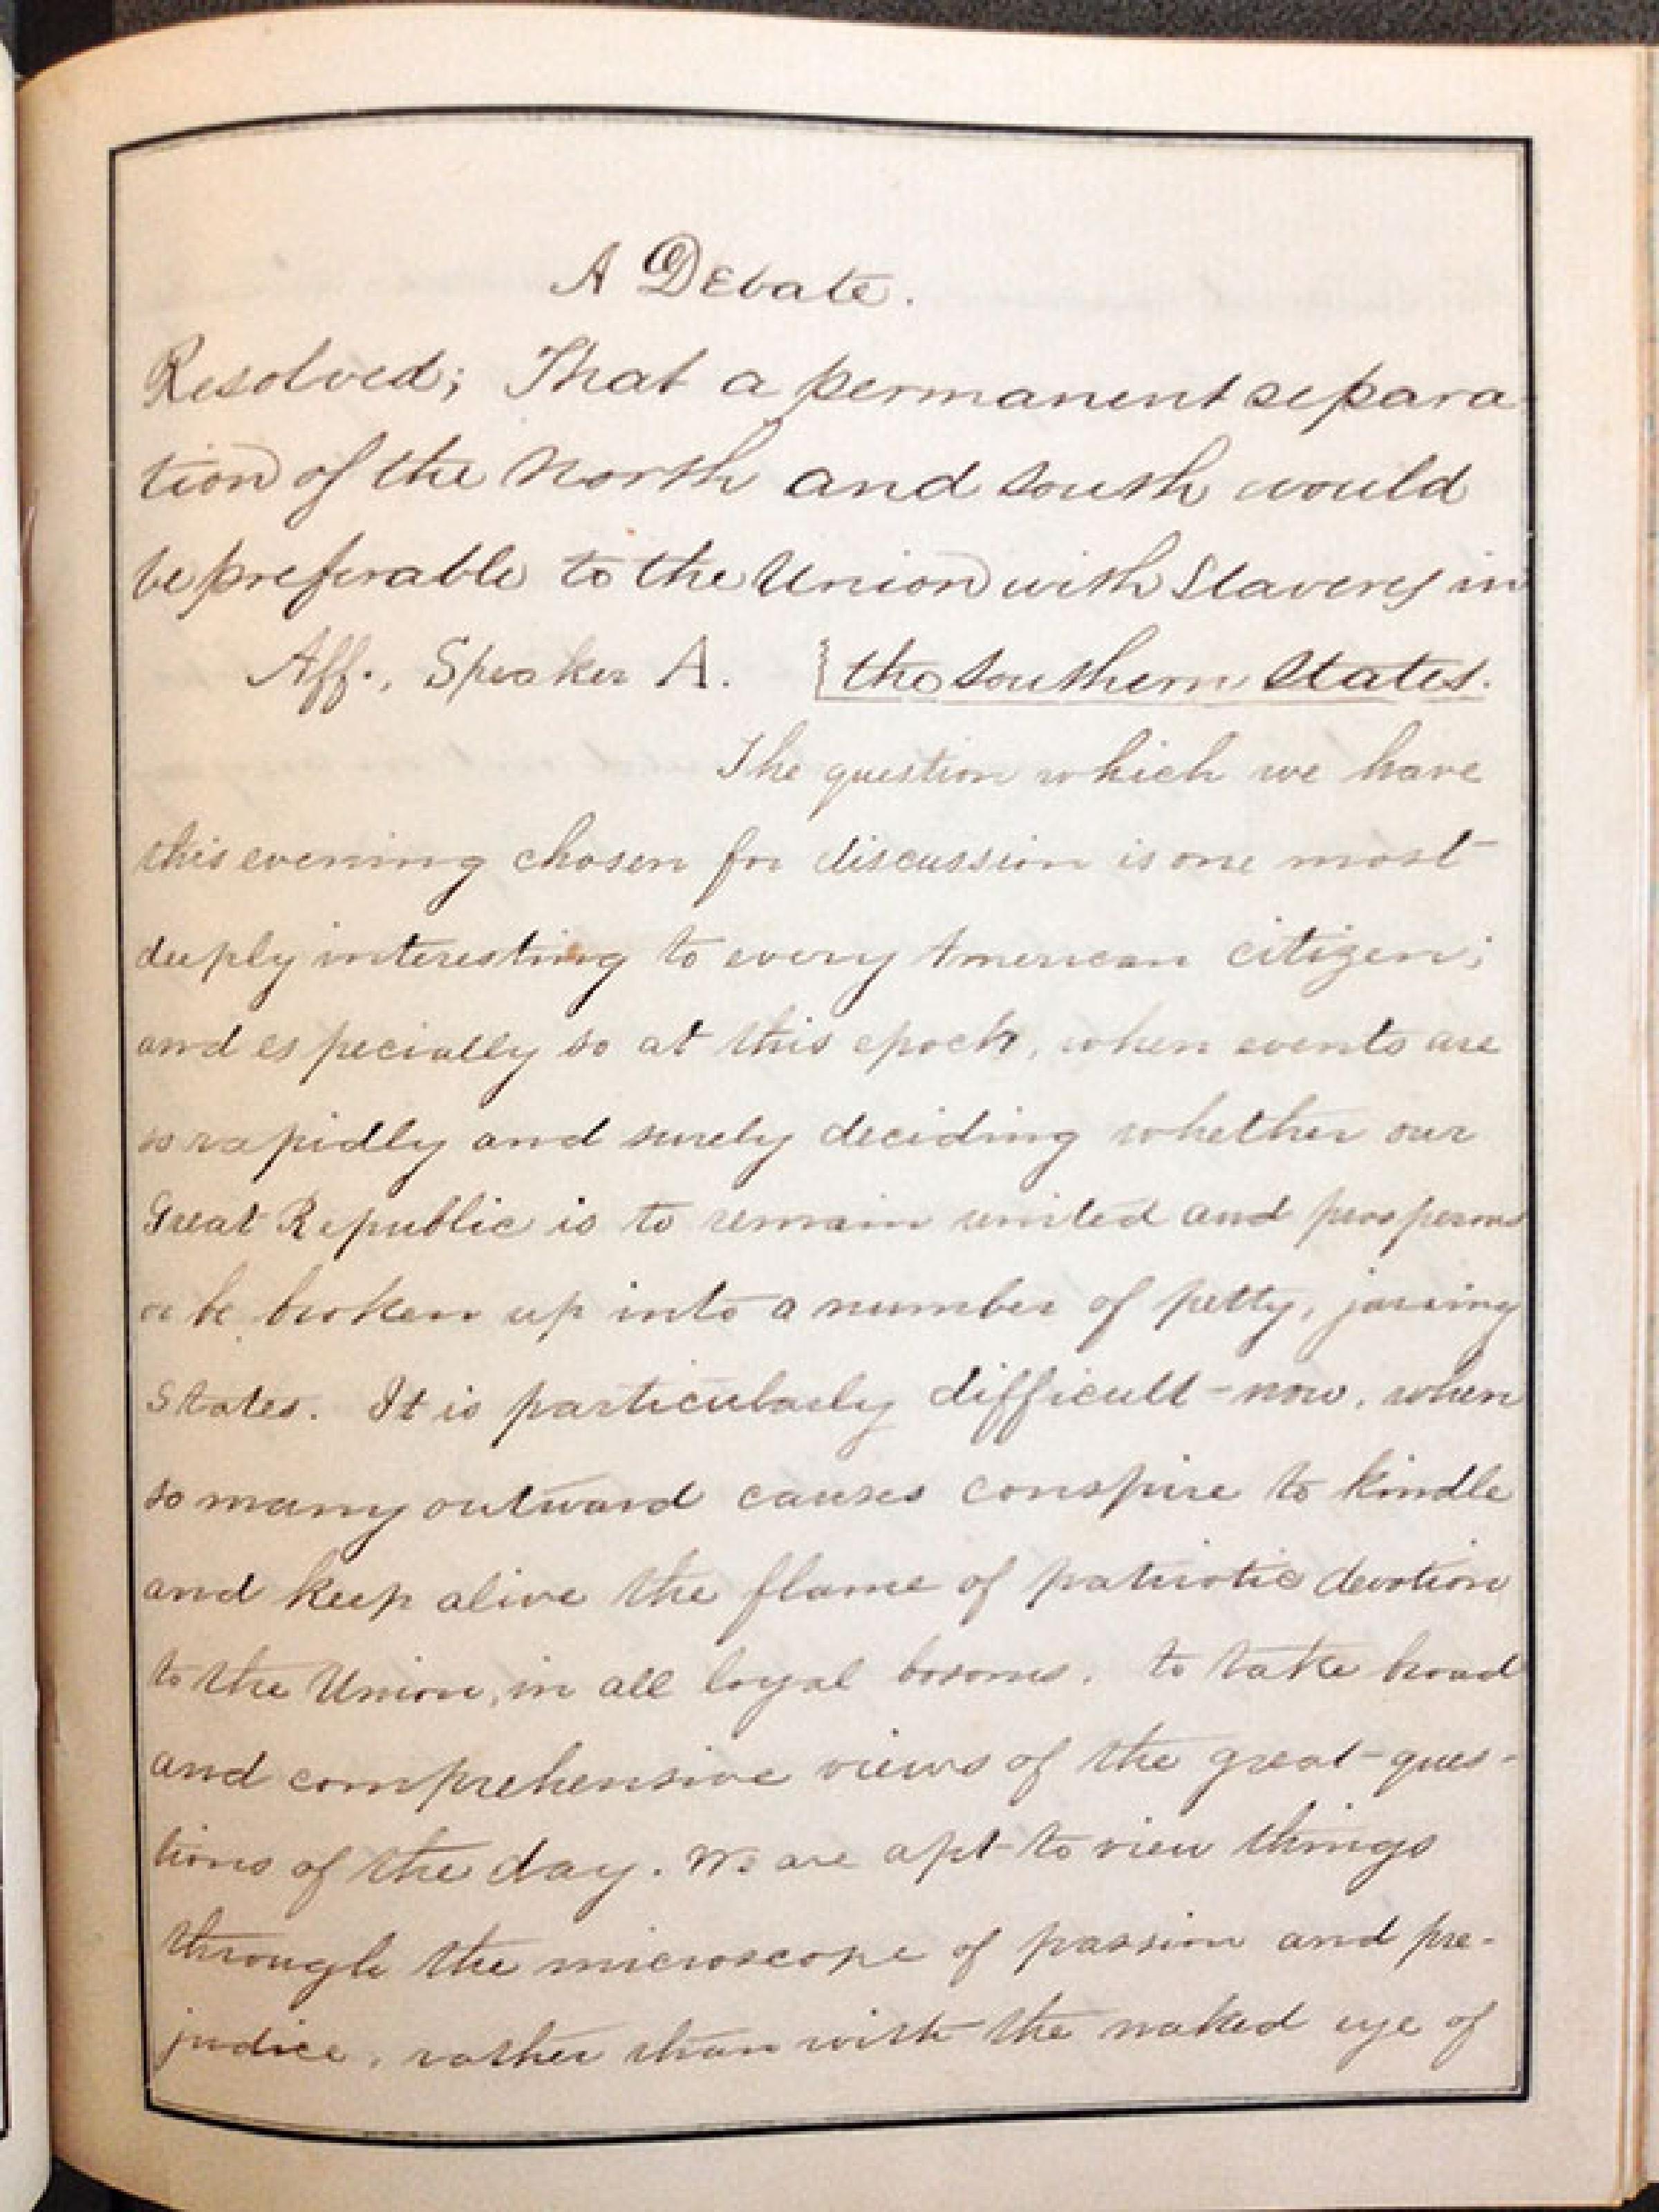 A Debate.
Resolved; That a permanent separa-
tion of the North and South would
be preferable to the Union with Slavery in
Aff., Speaker A. [the Southern States.
The question which we have
this evening chosen for discussion is one most
deeply interesting to every American citizen;
and especially so at this epoch, when events are
so rapidly and surely deciding whether our
Great Republic is to remain united and prosperous
or be broken up into a number of petty, jarring
States. It is particularly difficult now, when
so many outward causes conspire to kindle
and keep alive the flame of patriotic devotion
to the Union, in all loyal bosoms, to take broad
and comprehensive views of the great ques-
tions of the day. We are apt to view things
through the microscope of passion and pre-
judice, rather than with the naked eye of